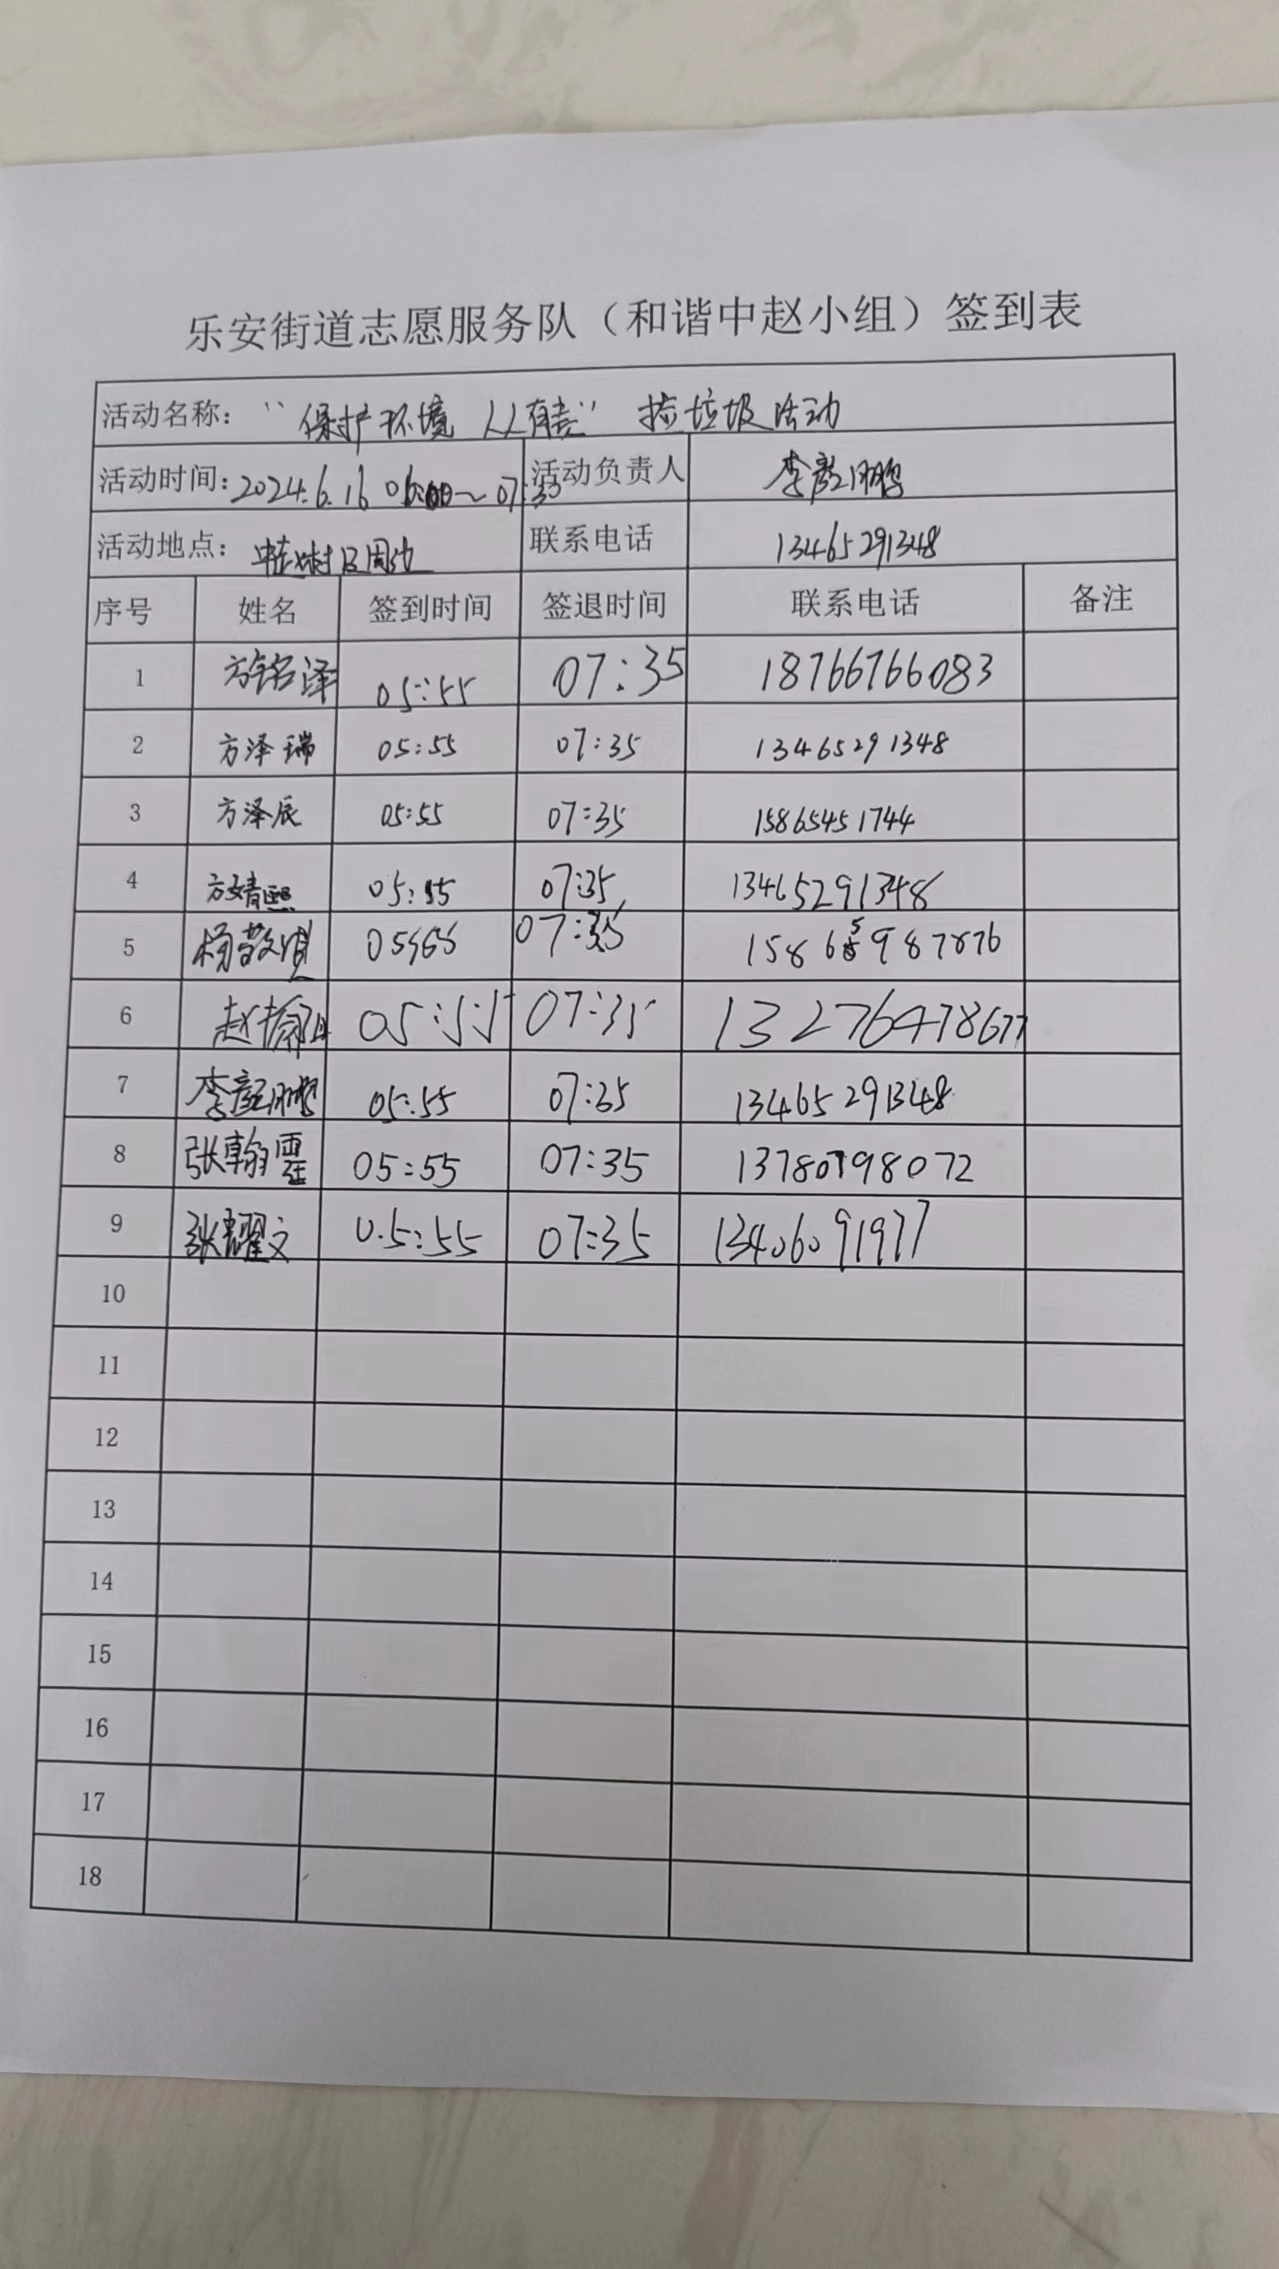 乐安街道志愿服务队（和谐中赵小组）签到表
活动名称：“保护环境 人人有责” 捡垃圾活动
活动时间：2024.6.16 06:00～07:35 活动负责人 李彦鹏
活动地点：中赵村及周边 联系电话 13465291348
序号 姓名 签到时间 签退时间 联系电话 备注
1 方铭泽 05:55 07:35 18766766083
2 方泽瑞 05:55 07:35 13465291348
3 方泽辰 05:55 07:35 15865451744
4 方婧熙 05:55 07:35 13465291348
5 杨敬 05:55 07:35 15865987876
6 赵 05:55 07:35 13276478677
7 李彦鹏 05:55 07:35 13465291348
8 张翰霆 05:55 07:35 13780798072
9 张耀文 05:55 07:35 13406091977
10
11
12
13
14
15
16
17
18